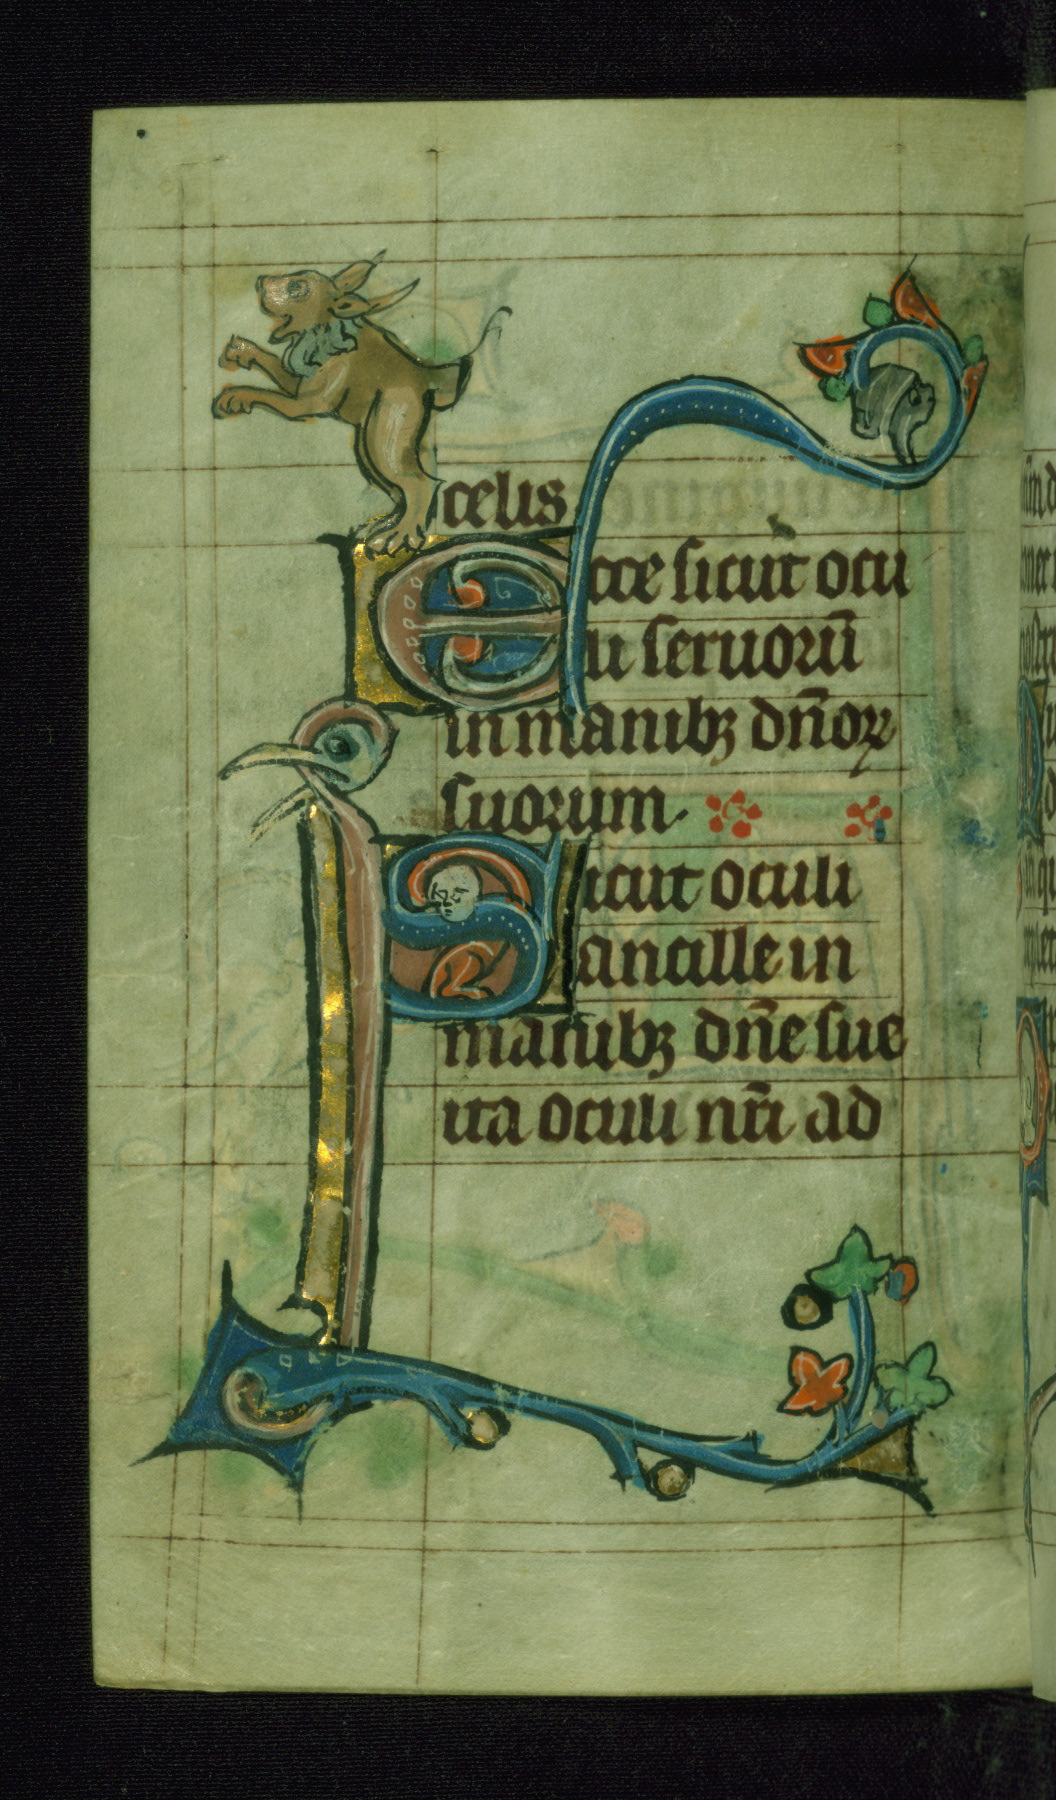 celis
Ecce sicut ocu
li seruorū
in manibꝫ dn̄oꝝ
suorum.
Sicut oculi
ancille in
manibꝫ dn̄e sue
ita oculi nr̄i ad